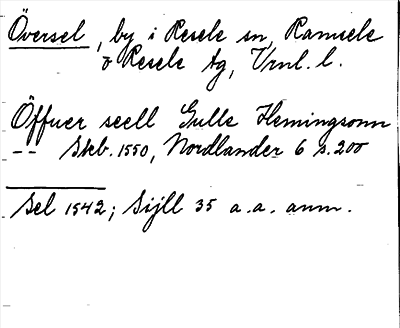 Översel, by i Resele sn, Ramsele
o Resele tg, Vrnl. l.
Öffuer seell Gulle Hemingsonn
-- Skb. 1550, Nordlander 6 s. 200
Sel 1542; Sijll 35 a.a. anm.